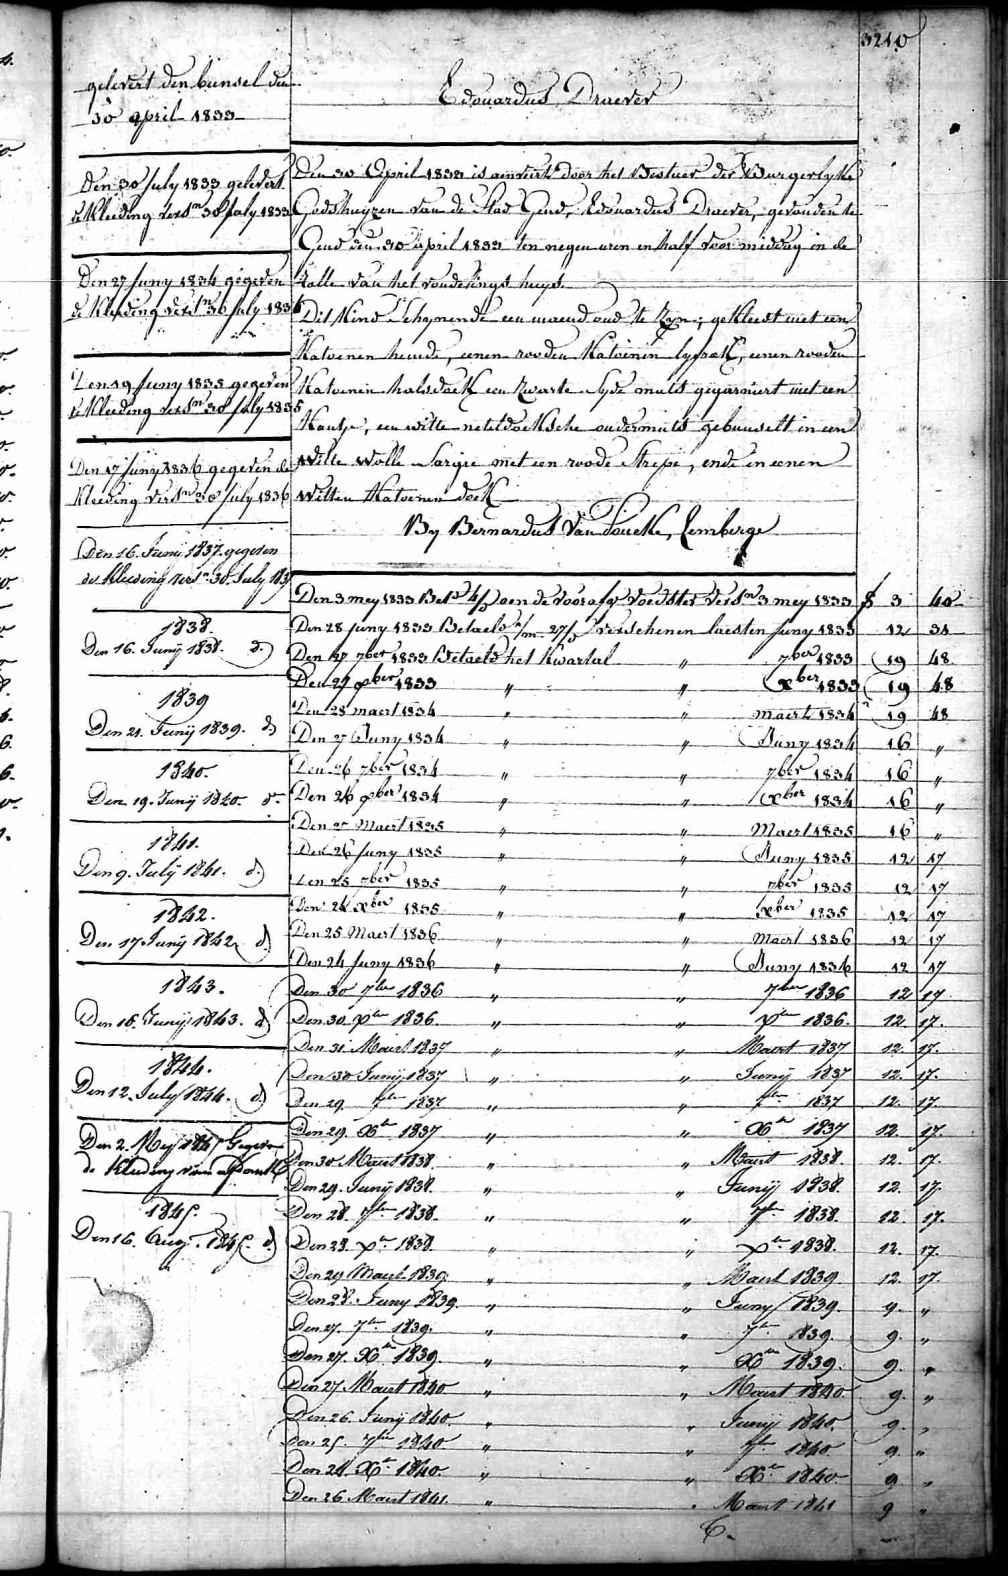 3210
gelevert den bunsel den
30 april 1833
Den 30 July 1833 gelevert
de Kleeding versn 30 July 1833
Den 27 Juny 1834 gegeven
de Kleeding versn 30 July 1834
Den 19 Juny 1835 gegeven
de Kleeding versn 30 July 1835
Den 17 Juny 1836 gegeven de
Kleeding versn 30 July 1836
Den 16. Junij 1837. gegeven
de Kleeding versn 30. July 183
1838.
Den 16. Junij 1838. d.
1839
Den 21. Junij 1839. d
1840.
Den 19. Junij 1840. d.
1841.
Den 9. Julij 1841. d.
1842.
Den 17. Junij 1842 d
1843.
Den 16. Junij 1843. d
1844.
Den 12. July 1844. d
Den 2. Meij 1845 Gegeven
de Kleeding van
1845.
Den 16. Aug. 1845. d
Edouardus Draever
Den 30 April 1833 is aenveert door het Bestuer der Burgerlyke
Godshuyzen van de Stad Gend, Edouardus Draever, gevonden te
Gend den 30 April 1833 ten negen uren en half voor middag in de
Rolle van het vondelings huys
Dit Kind schynende een maend oud te zyn; gekleed met een
Katoenen hemde, eenen rooden Katoenen lyfrok, eenen rooden
Katoenen halsdoek een zwarte syde muts gegarniert met een
Kantje, een witte neteldoeksche ondermuts gebunselt in een
witte wolle sargie met een roode strepe, ende in eenen
witten Katoenen doek
By Bernardus Van Soucke, Lemberge
Den 3 mey 1833 Betd 4/ aen de voorafge voedster versn 3 mey 1833 f 3 40
Den 28 Juny 1833 Betaeld 27/ verschenen laesten Juny 1833 12 31
Den 27 7ber 1833 Betaeld het Kwartal " 7ber 1833 19 48
Den 27 xber 1833 " " xber 1833 19 48
Den 28 maert 1834 " " maert 1834 19 48
Den 27 Juny 1834 " " Juny 1834 16 "
Den 26 7ber 1834 " " 7ber 1834 16 "
Den 26 xber 1834 " " xber 1834 16 "
Den Maert 1835 " " Maert 1835 16 "
Den 26 Juny 1835 " " Juny 1835 12 17
Den 25 7ber 1835 " " 7ber 1835 12 17
Den 24 xber 1835 " " xber 1835 12 17
Den 25 Maert 1836 " " Maert 1836 12 17
Den 24 Juny 1836 " " Juny 1836 12 17
Den 30 7ber 1836 " " 7ber 1836 12 17
Den 30 xber 1836. " " xber 1836. 12. 17.
Den 31 Maert 1837 " " Maert 1837 12. 17.
Den 30 Junij 1837 " " Junij 1837 12. 17.
Den 29. 7ber 1837 " " 7ber 1837 12. 17.
Den 29. Xber 1837 " " Xber 1837 12. 17.
Den 30 Maert 1838 " " Maert 1838. 12. 17.
Den 29. Junij 1838. " " Junij 1838. 12. 17.
Den 28. 7ber 1838. " " 7ber 1838. 12. 17.
Den 28. xber 1838. " " xber 1838. 12. 17.
Den 29 Maert 1839 " " Maert 1839 12. 17.
Den 28. Juny 1839. " " Juny 1839. 9. "
Den 27. 7ber 1839. " " 7ber 1839. 9. "
Den 27. Xber 1839. " " Xber 1839. 9. "
Den 27 Maert 1840 " " Maert 1840 9. "
Den 26. Junij 1840 " " Junij 1840. 9. "
Den 25. 7ber 1840 " " 7ber 1840 9. "
Den 24. Xber 1840. " " Xber 1840. 9 "
Den 26 Maert 1841. " " Maert 1841 9 "